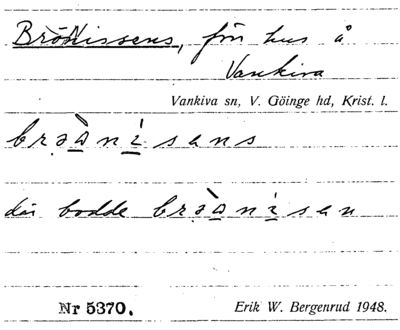 Brönissens, för hus å
Vankiva
Vankiva sn, V. Göinge hd, Krist. l.
brəànísans
där bodde brəànísan
Nr 5370. Erik W. Bergenrud 1948.